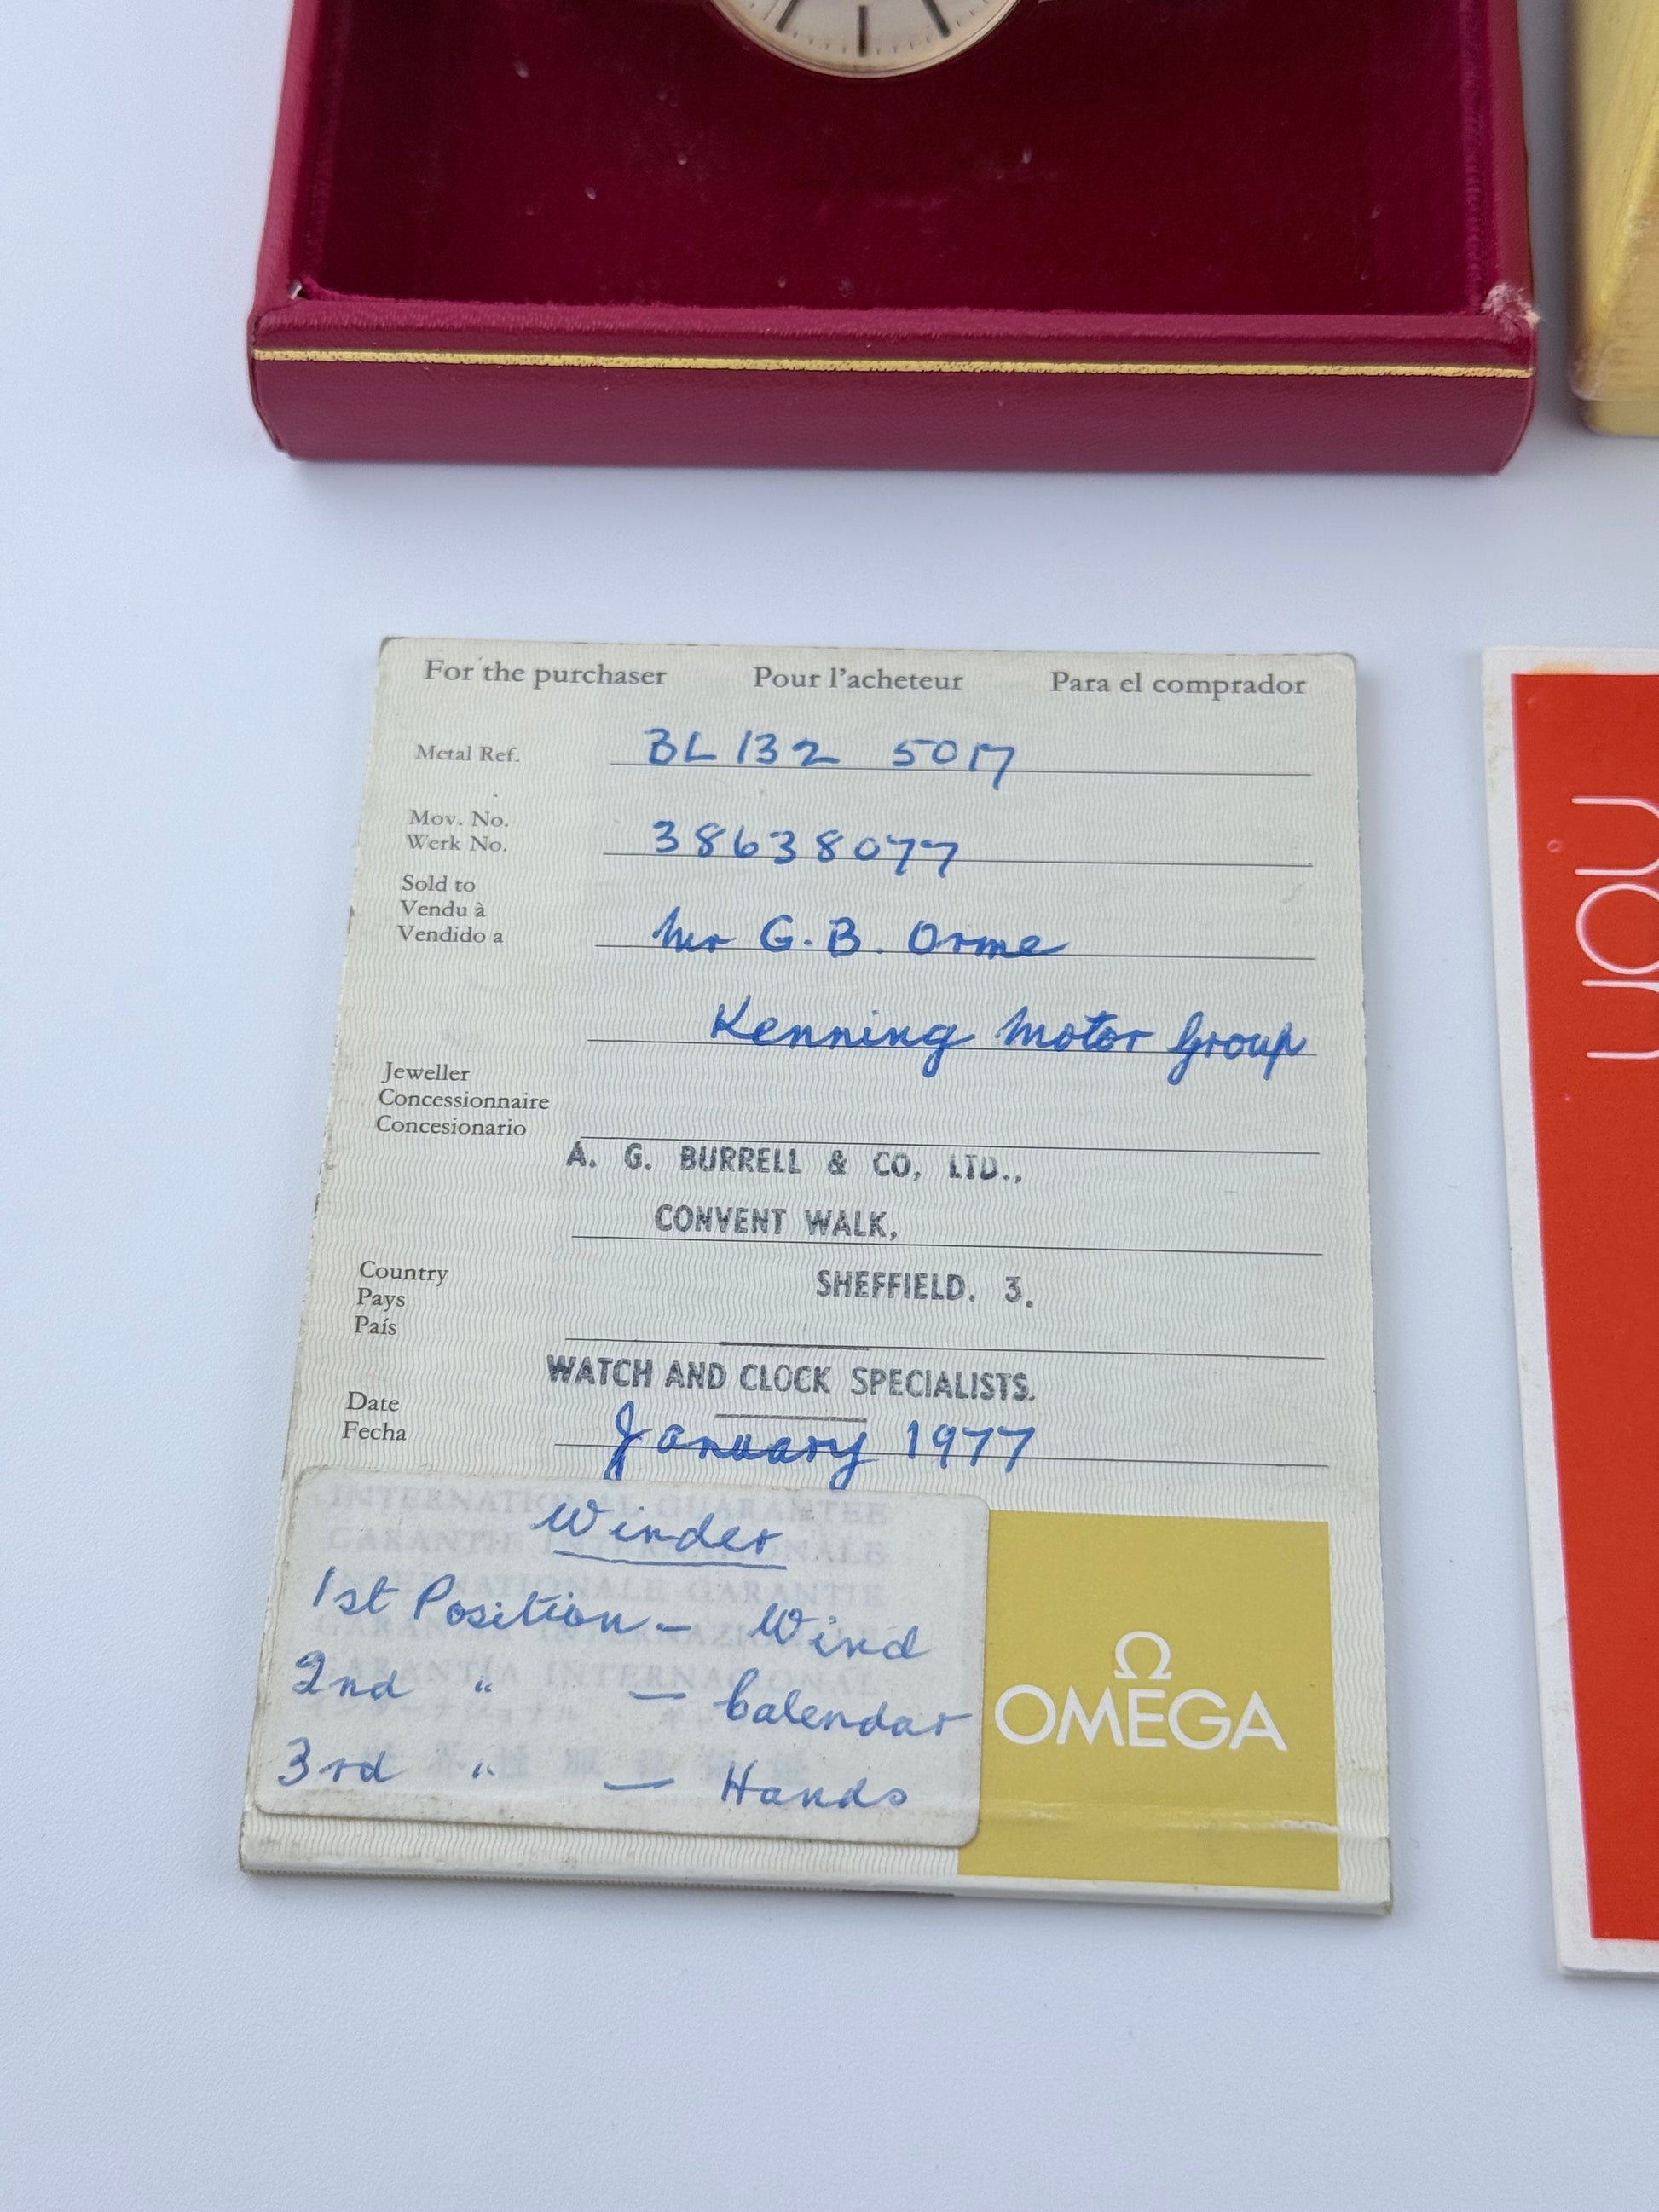 For the purchaser Pour l'acheteur Para el comprador
Metal Ref. BL 132 5017
Mov. No.
Werk No. 38638077
Sold to
Vendu à
Vendido a Mr G.B. Orme
Kenning Motor Group
Jeweller
Concessionnaire
Concesionario
A. G. BURRELL & CO, LTD.,
CONVENT WALK,
Country
Pays
País
SHEFFIELD. 3.
WATCH AND CLOCK SPECIALISTS.
Date
Fecha January 1977
INTERNATIONAL GUARANTEE
GARANTIE INTERNATIONALE
INTERNATIONALE GARANTIE
GARANZIA INTERNAZIONALE
GARANTÍA INTERNACIONAL
Winder
1st Position - Wind
2nd " - Calendar
3rd " - Hands
Ω
OMEGA